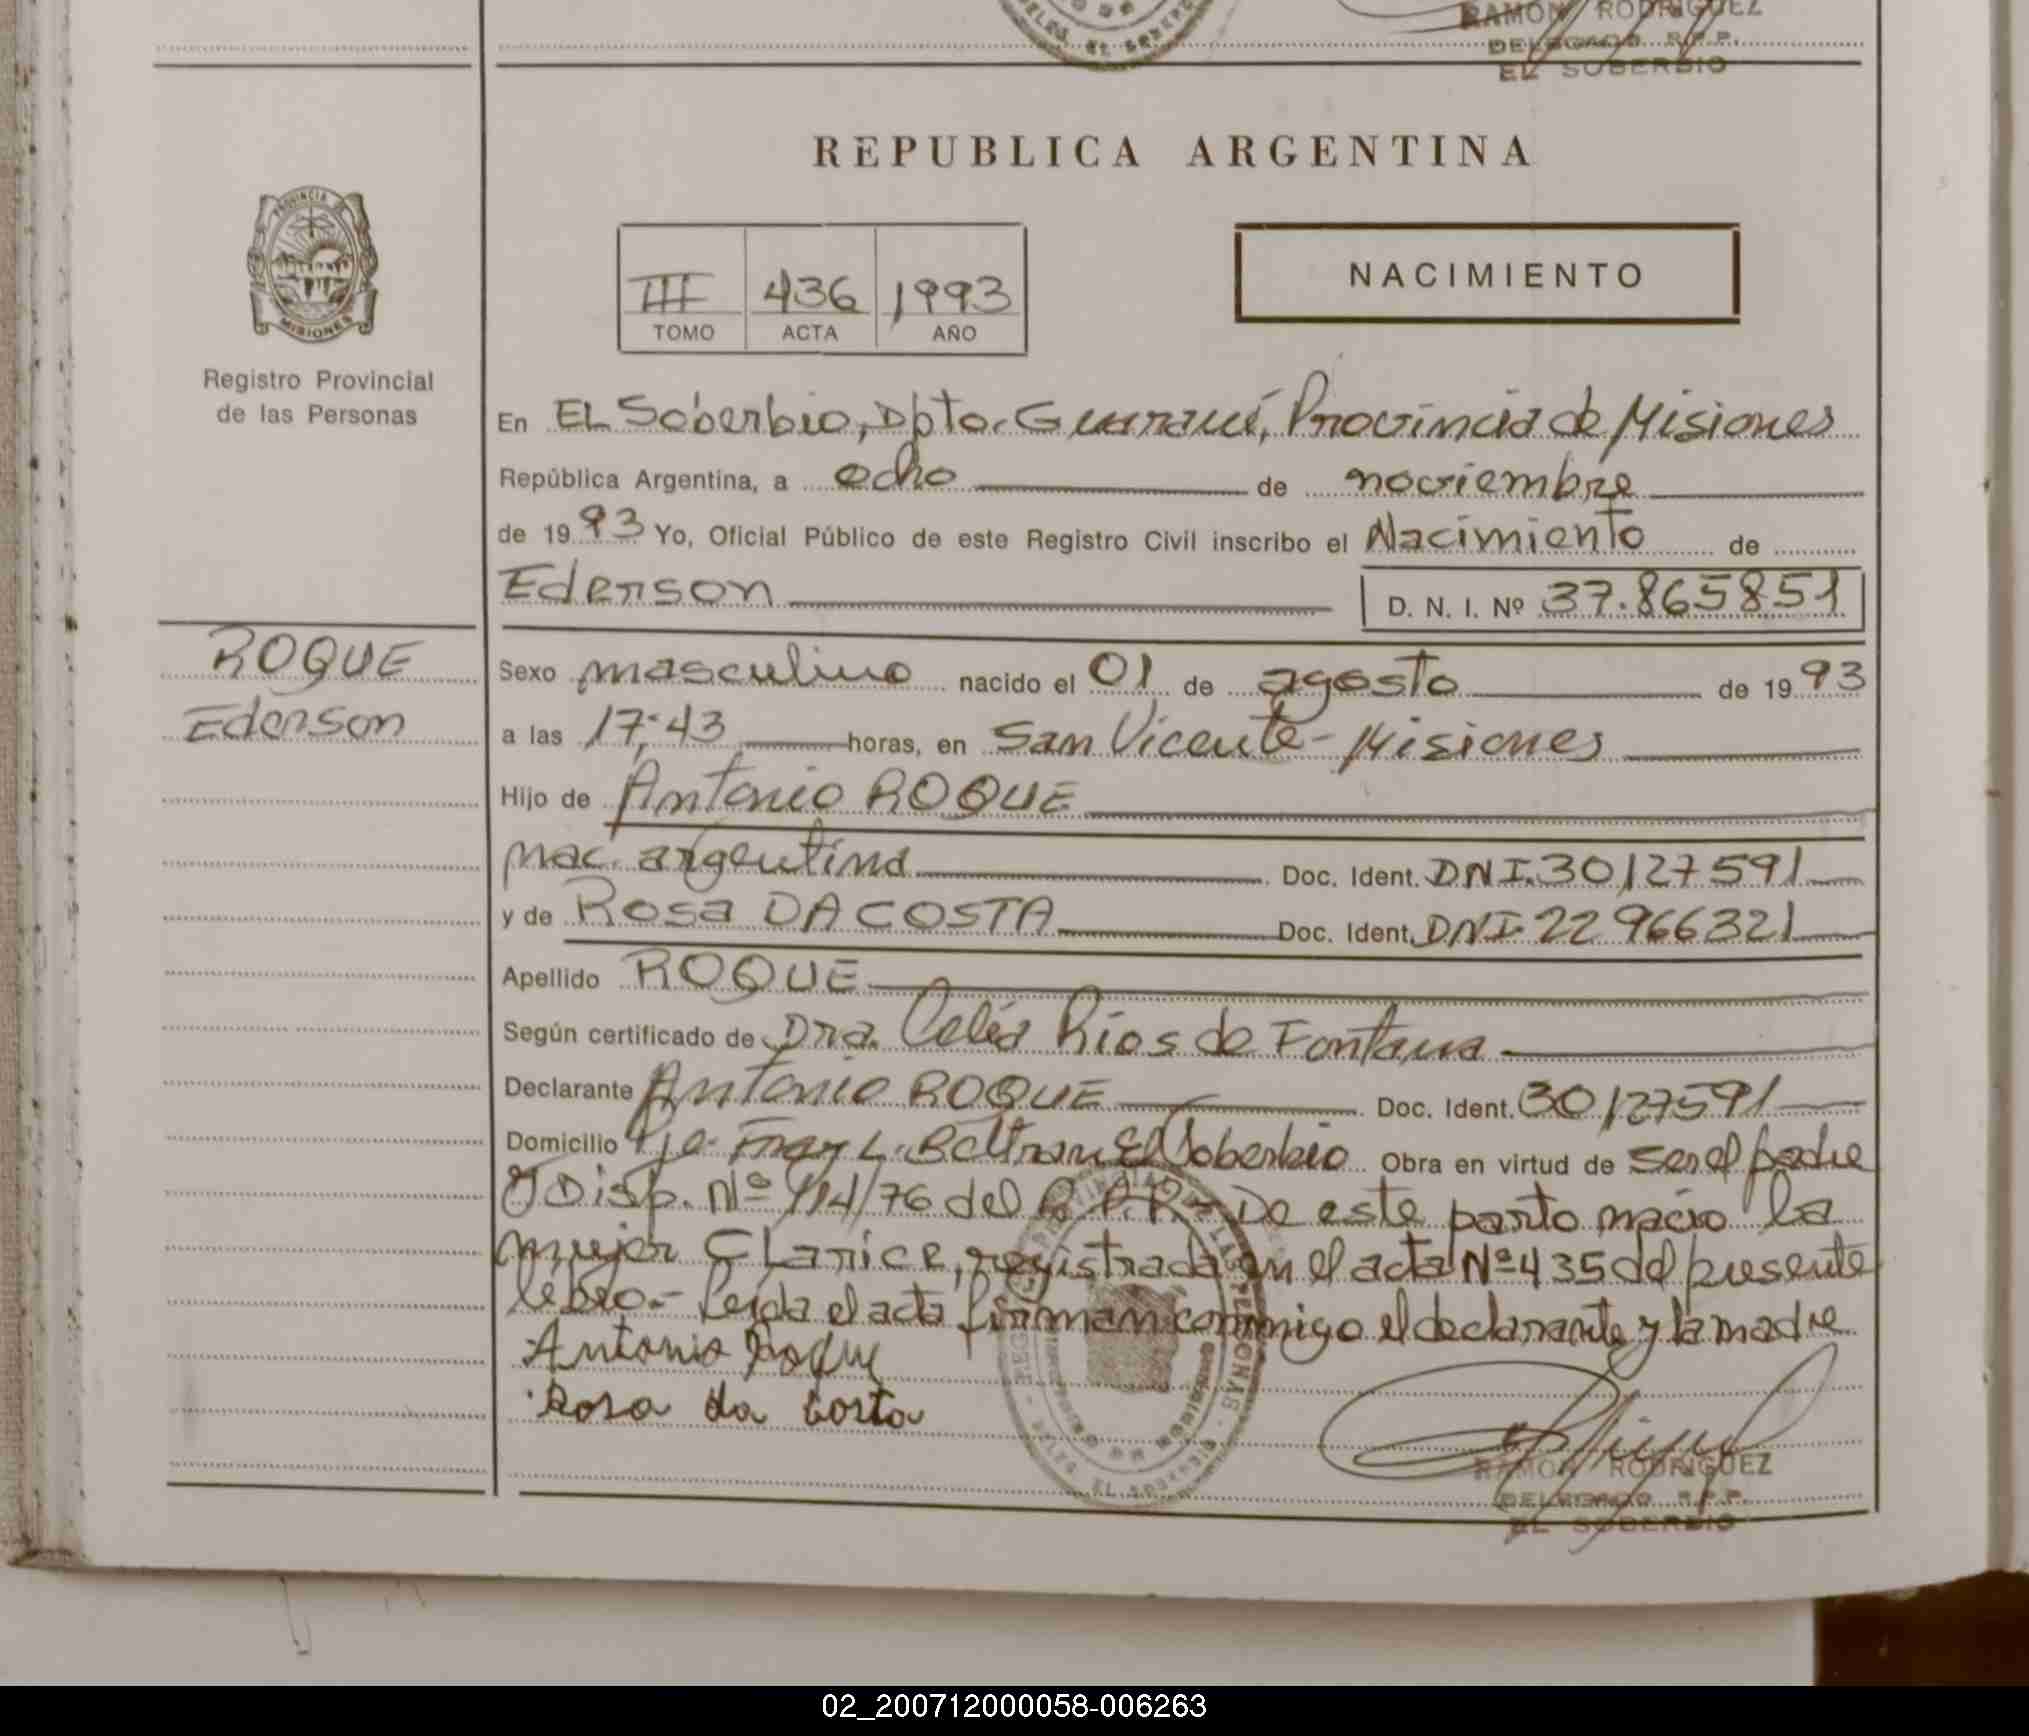 RAMON RODRIGUEZ
DELEGADO R.P.P.
EL SOBERBIO
REPUBLICA ARGENTINA
PROVINCIA DE
MISIONES
Registro Provincial
de las Personas
III 436 1993
TOMO ACTA AÑO
NACIMIENTO
En EL Soberbio, Dpto. Guaraní, Provincia de Misiones
República Argentina, a ocho de noviembre
de 1993 Yo, Oficial Público de este Registro Civil inscribo el Nacimiento de
Ederson D. N. I. Nº 37.865851
ROQUE
Ederson
Sexo masculino nacido el 01 de agosto de 1993
a las 17:43 horas, en San Vicente - Misiones
Hijo de Antonio ROQUE
nac. argentina Doc. Ident. DNI. 30127591
y de Rosa DA COSTA Doc. Ident. DNI. 22966321
Apellido ROQUE
Según certificado de Dra. Celia Rios de Fontana
Declarante Antonio ROQUE Doc. Ident. 30127591
Domicilio Pje. Fray L. Beltran El Soberbio Obra en virtud de ser el padre
y Disp. Nº 114/76 del R.P.P.- De este parto nacio la
mujer Clarice, registrada en el acta Nº 435 del presente
libro.- Leida el acta firman conmigo el declarante y la madre
Antonio Roque
Rosa da Costa
RAMON RODRIGUEZ
DELEGADO R.P.P.
EL SOBERBIO
02_200712000058-006263